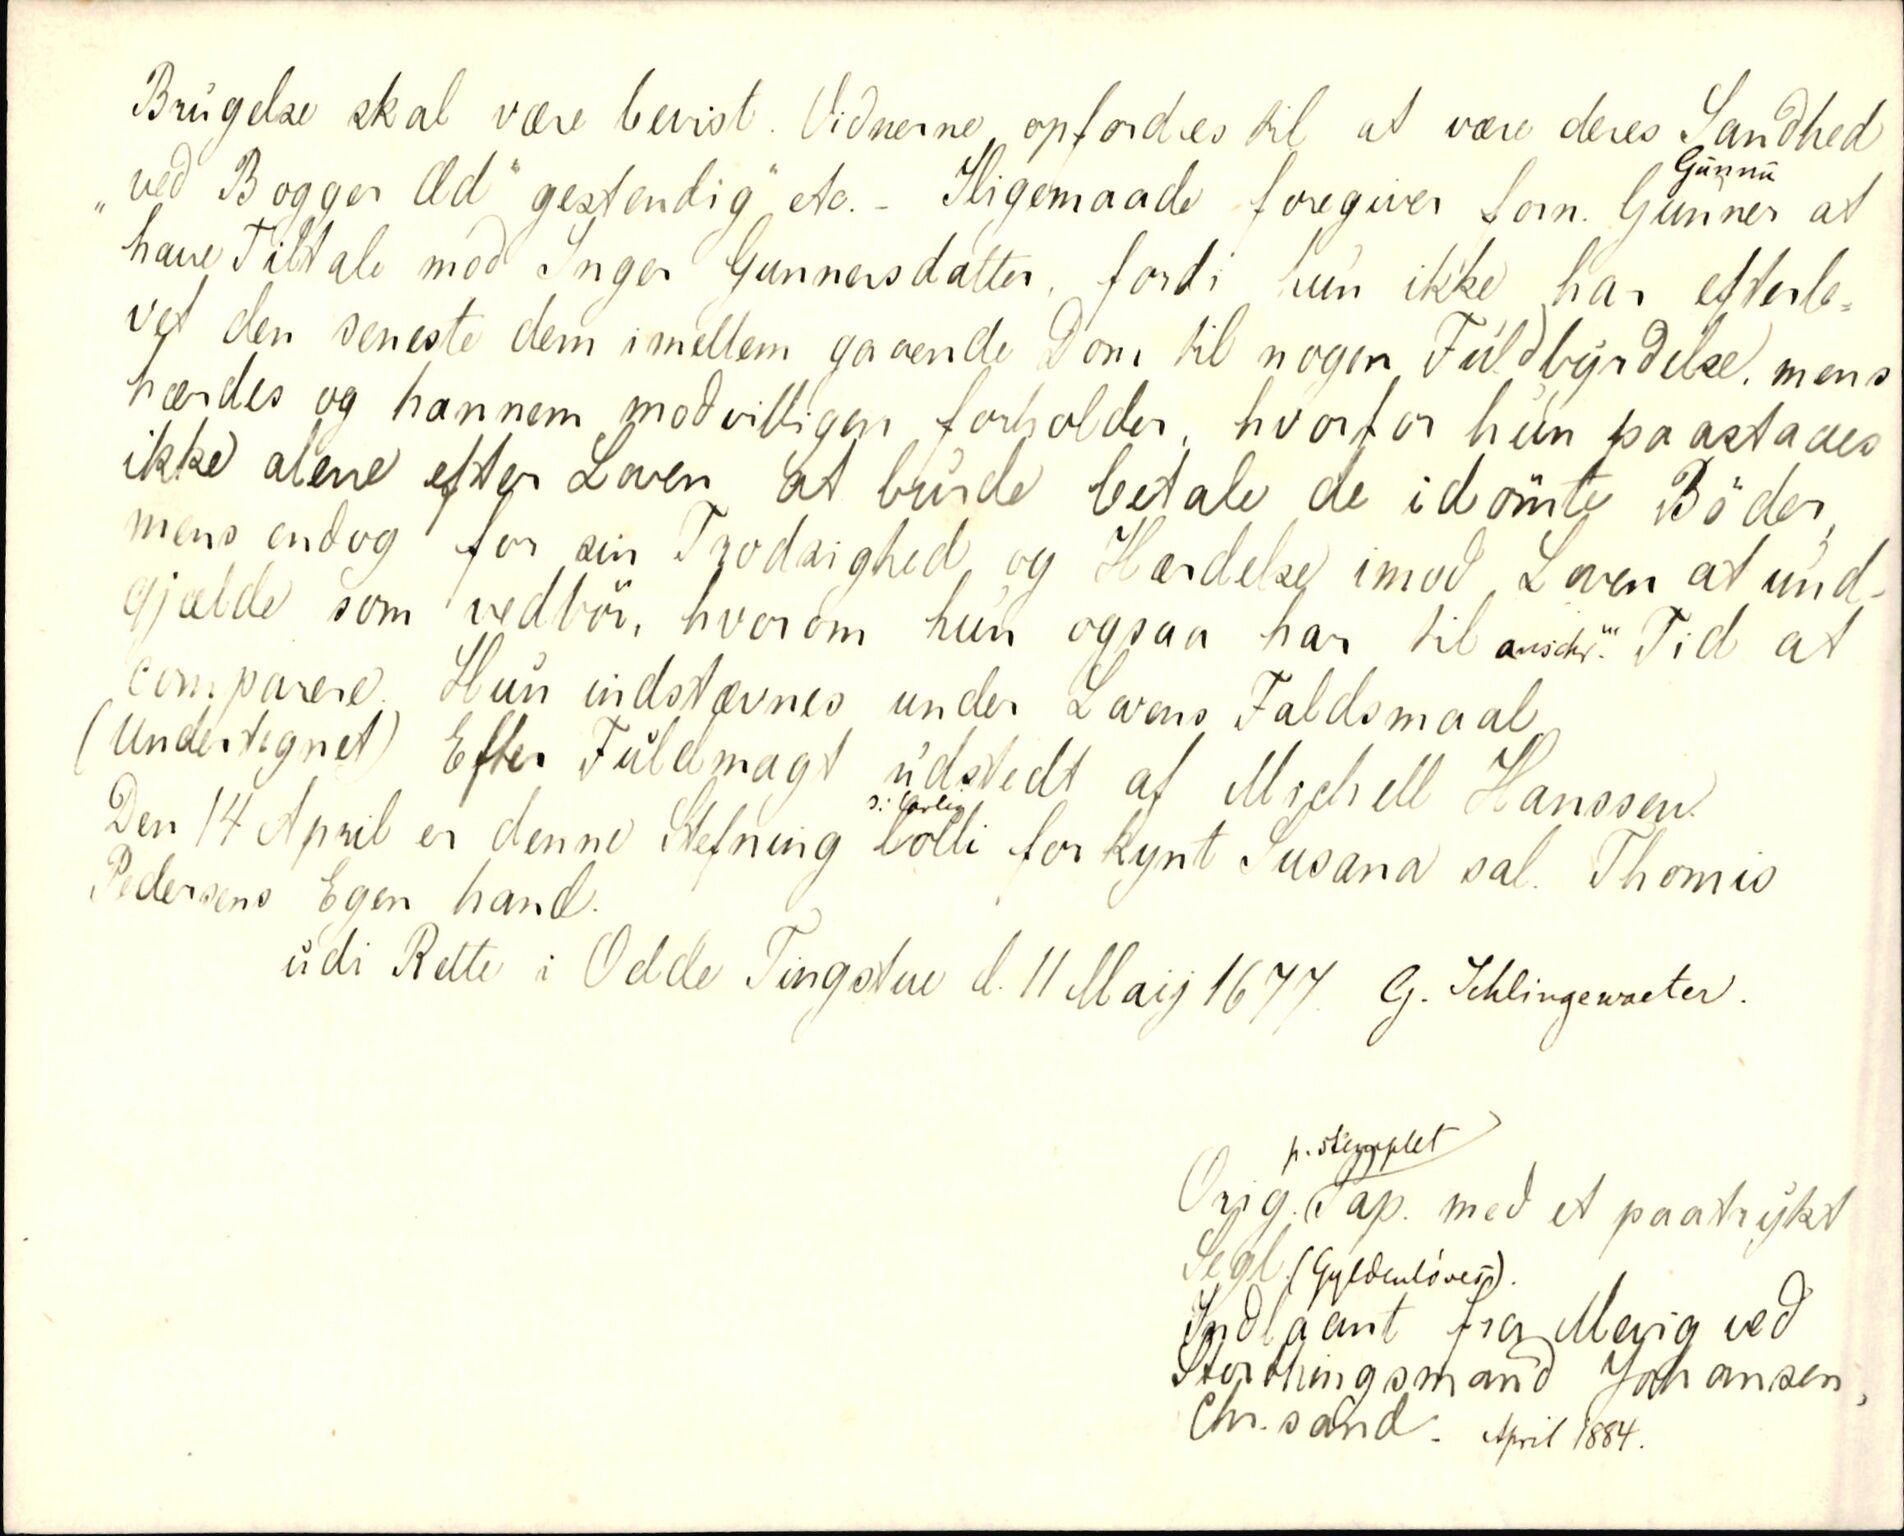 Brugelse skal være bevist. Vidnerne opfordres til at være deres Sandhed
„ved Bogger Æd" gestendig" etc. - Iligemaade foregiver forn. Gunner at
Gunnu
have Tiltale mod Inger Gunnersdatter, fordi hun ikke har efterle-
vet den seneste dem imellem gaaende Dom til nogen Fuldbyrdelse, mens
hærdes og hannem modvilligen forholder, hvorfor hun paastaaes
ikke alene efter Loven at burde betale de idömte Böder,
mens endog for sin Trodsighed og Hærdelse imod Loven at und-
gjælde som vedbör, hvorom hun ogsaa har til Tid at
comparere. Hun indstævnes under Lovens Faldsmaal
(Undertegnet) Efter Fuldmagt udstedt af Michell Hanssen.
Den 14 April er denne Stefning lolli forkynt Susana sal. Thomis
Pedersens Egen hand.
udi Rette i Odde Tingstue d. 11 Maij 1677. G. Schlingewaeter.
p. stemplet
Orig. Pap. med et paatrykt
Segl (Gyldenlöves).
Indlaant fra Mevig ved
Storthingsmand Johansen,
Chr.sand. April 1884.